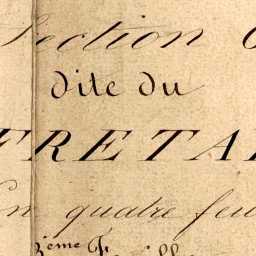 Section
dite du
FRETA
En quatre feu
3ème F